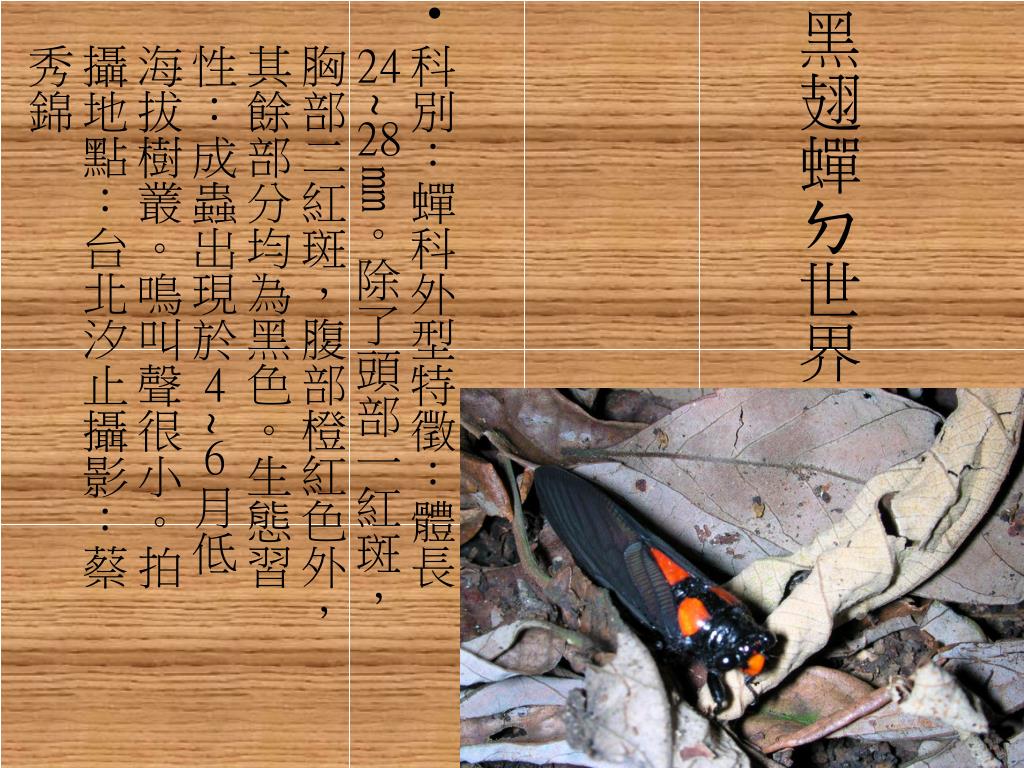 黑翅蟬ㄉ世界
• 科別：蟬科外型特徵：體長
24~28㎜。除了頭部一紅斑，
胸部二紅斑，腹部橙紅色外，
其餘部分均為黑色。生態習
性：成蟲出現於4~6月低
海拔樹叢。鳴叫聲很小。拍
攝地點：台北汐止攝影：蔡
秀錦